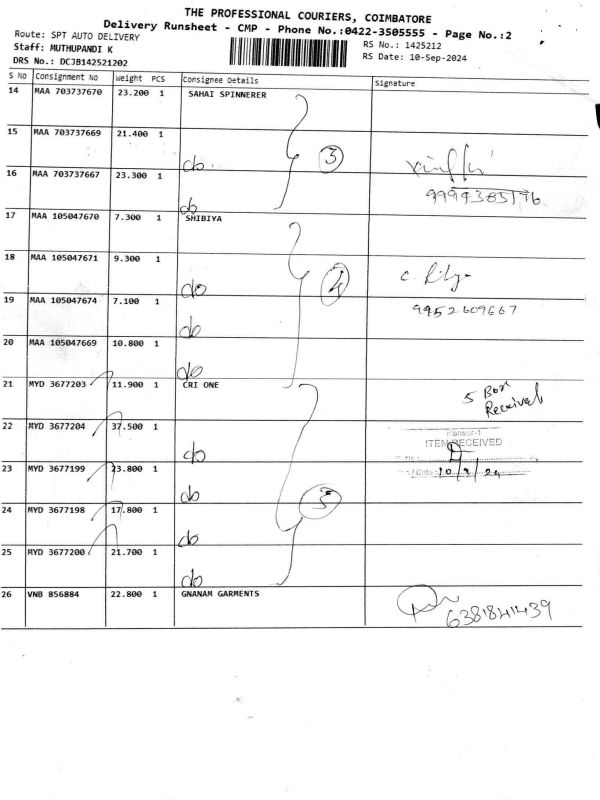 THE PROFESSIONAL COURIERS, COIMBATORE
Delivery Runsheet - CMP - Phone No.:0422-3505555 - Page No.:2
Route: SPT AUTO DELIVERY
RS No.: 1425212
Staff: MUTHUPANDI K
RS Date: 10-Sep-2024
DRS No.: DCJB142521202
S No Consignment No Weight PCS Consignee Details Signature
14 MAA 703737670 23.200 1 SAHAI SPINNERER
15 MAA 703737669 21.400 1 do
3
16 MAA 703737667 23.300 1 do
17 MAA 105047670 7.300 1 SHIBIYA
18 MAA 105047671 9.300 1 do
4
19 MAA 105047674 7.100 1 do
9952609667
20 MAA 105047669 10.800 1 do
21 MYD 3677203 11.900 1 CRI ONE
5 Box
Received
22 MYD 3677204 37.500 1 do
ITEM RECEIVED
23 MYD 3677199 23.800 1 do
10/9/24
24 MYD 3677198 17.800 1 do
5
25 MYD 3677200 21.700 1 do
26 VNB 856884 22.800 1 GNANAM GARMENTS
6381841439